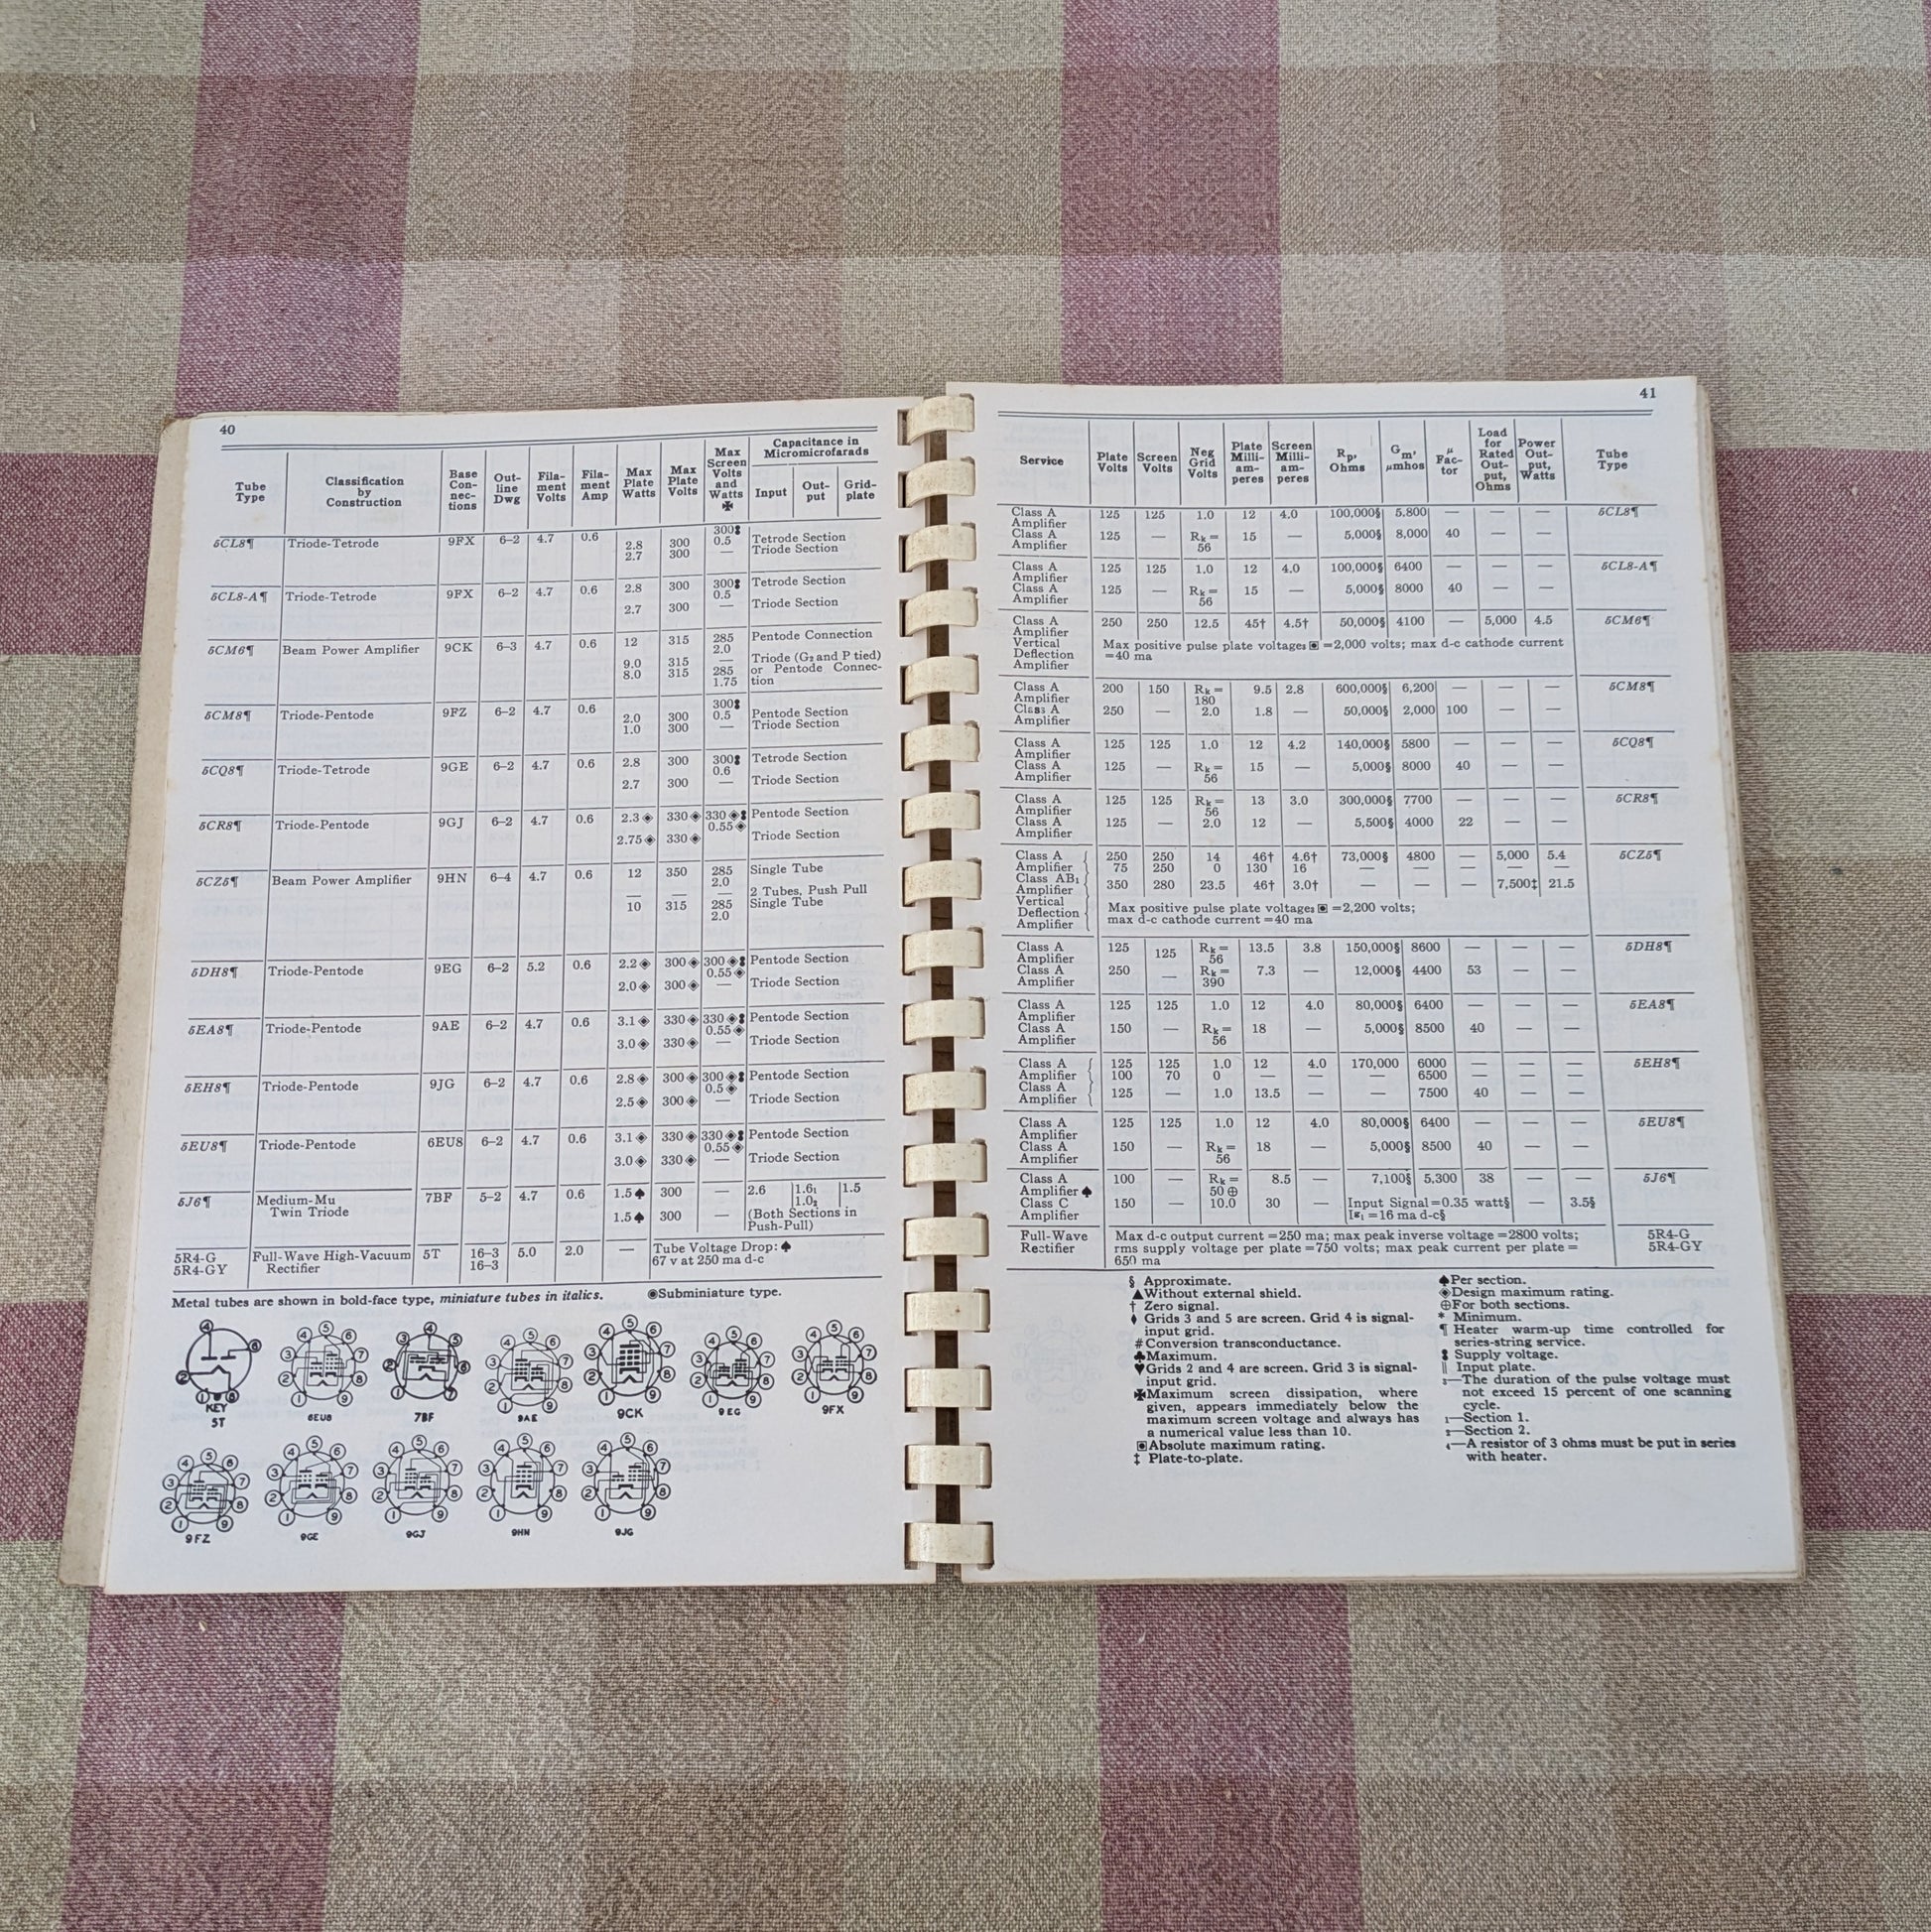 40
Tube Type | Classification by Construction | Base Connections | Outline Dwg | Filament Volts | Filament Amp | Max Plate Watts | Max Plate Volts | Max Screen Volts and Watts ✠ | Capacitance in Micromicrofarads: Input | Output | Grid-plate
5CL8¶ Triode-Tetrode 9FX 6–2 4.7 0.6 2.8 300 300❢ 0.5 Tetrode Section
2.7 300 — Triode Section
5CL8-A¶ Triode-Tetrode 9FX 6–2 4.7 0.6 2.8 300 300❢ 0.5 Tetrode Section
2.7 300 — Triode Section
5CM6¶ Beam Power Amplifier 9CK 6–3 4.7 0.6 12 315 285 2.0 Pentode Connection
9.0 315 — Triode (G₂ and P tied)
8.0 315 285 1.75 or Pentode Connection
5CM8¶ Triode-Pentode 9FZ 6–2 4.7 0.6 2.0 300 300❢ 0.5 Pentode Section
1.0 300 — Triode Section
5CQ8¶ Triode-Tetrode 9GE 6–2 4.7 0.6 2.8 300 300❢ 0.6 Tetrode Section
2.7 300 — Triode Section
5CR8¶ Triode-Pentode 9GJ 6–2 4.7 0.6 2.3◈ 330◈ 330◈❢ 0.55◈ Pentode Section
2.75◈ 330◈ Triode Section
5CZ5¶ Beam Power Amplifier 9HN 6–4 4.7 0.6 12 350 285 2.0 Single Tube
— — — 2 Tubes, Push Pull
10 315 285 2.0 Single Tube
5DH8¶ Triode-Pentode 9EG 6–2 5.2 0.6 2.2◈ 300◈ 300◈❢ 0.55◈ Pentode Section
2.0◈ 300◈ — Triode Section
5EA8¶ Triode-Pentode 9AE 6–2 4.7 0.6 3.1◈ 330◈ 330◈❢ 0.55◈ Pentode Section
3.0◈ 330◈ — Triode Section
5EH8¶ Triode-Pentode 9JG 6–2 4.7 0.6 2.8◈ 300◈ 300◈❢ 0.5◈ Pentode Section
2.5◈ 300◈ — Triode Section
5EU8¶ Triode-Pentode 6EU8 6–2 4.7 0.6 3.1◈ 330◈ 330◈❢ 0.55◈ Pentode Section
3.0◈ 330◈ — Triode Section
5J6¶ Medium-Mu Twin Triode 7BF 5–2 4.7 0.6 1.5♠ 300 — 2.6 1.6₁ 1.0₂ 1.5
1.5♠ 300 — (Both Sections in Push-Pull)
5R4-G Full-Wave High-Vacuum 5T 16–3 5.0 2.0 — Tube Voltage Drop:♠
5R4-GY Rectifier 16–3 67 v at 250 ma d-c
Metal tubes are shown in bold-face type, miniature tubes in italics. ◉Subminiature type.
KEY
5T 6EU8 7BF 9AE 9CK 9EG 9FX
9FZ 9GE 9GJ 9HN 9JG
41
Service | Plate Volts | Screen Volts | Neg Grid Volts | Plate Milliamperes | Screen Milliamperes | Rp, Ohms | Gm, μmhos | μ Factor | Load for Rated Output, Ohms | Power Output, Watts | Tube Type
Class A Amplifier 125 125 1.0 12 4.0 100,000§ 5,800 — — — 5CL8¶
Class A Amplifier 125 — Rk = 56 15 — 5,000§ 8,000 40 — —
Class A Amplifier 125 125 1.0 12 4.0 100,000§ 6400 — — — 5CL8-A¶
Class A Amplifier 125 — Rk = 56 15 — 5,000§ 8000 40 — —
Class A Amplifier 250 250 12.5 45† 4.5† 50,000§ 4100 — 5,000 4.5 5CM6¶
Vertical Deflection Amplifier Max positive pulse plate voltage₃▣=2,000 volts; max d-c cathode current =40 ma
Class A Amplifier 200 150 Rk = 180 9.5 2.8 600,000§ 6,200 — — — 5CM8¶
Class A Amplifier 250 — 2.0 1.8 — 50,000§ 2,000 100 — —
Class A Amplifier 125 125 1.0 12 4.2 140,000§ 5800 — — — 5CQ8¶
Class A Amplifier 125 — Rk = 56 15 — 5,000§ 8000 40 — —
Class A Amplifier 125 125 Rk = 56 13 3.0 300,000§ 7700 — — — 5CR8¶
Class A Amplifier 125 — 2.0 12 — 5,500§ 4000 22 — —
Class A Amplifier 250 250 14 46† 4.6† 73,000§ 4800 — 5,000 5.4 5CZ5¶
75 250 0 130 16 — — — — —
Class AB₁ Amplifier 350 280 23.5 46† 3.0† — — — 7,500‡ 21.5
Vertical Deflection Amplifier Max positive pulse plate voltage₃▣=2,200 volts; max d-c cathode current =40 ma
Class A Amplifier 125 125 Rk = 56 13.5 3.8 150,000§ 8600 — — — 5DH8¶
Class A Amplifier 250 — Rk = 390 7.3 — 12,000§ 4400 53 — —
Class A Amplifier 125 125 1.0 12 4.0 80,000§ 6400 — — — 5EA8¶
Class A Amplifier 150 — Rk = 56 18 — 5,000§ 8500 40 — —
Class A Amplifier 125 125 1.0 12 4.0 170,000 6000 — — — 5EH8¶
100 70 0 — — — 6500 — — —
Class A Amplifier 125 — 1.0 13.5 — — 7500 40 — —
Class A Amplifier 125 125 1.0 12 4.0 80,000§ 6400 — — — 5EU8¶
Class A Amplifier 150 — Rk = 56 18 — 5,000§ 8500 40 — —
Class A Amplifier♠ 100 — Rk = 50⊕ 8.5 — 7,100§ 5,300 38 — — 5J6¶
Class C Amplifier 150 — 10.0 30 — Input Signal=0.35 watt§ Ig₁=16 ma d-c§ — 3.5§
Full-Wave Rectifier Max d-c output current=250 ma; max peak inverse voltage=2800 volts; 5R4-G
rms supply voltage per plate=750 volts; max peak current per plate= 5R4-GY
650 ma
§ Approximate.
▲Without external shield.
† Zero signal.
♦ Grids 3 and 5 are screen. Grid 4 is signal-
input grid.
# Conversion transconductance.
♣Maximum.
♥Grids 2 and 4 are screen. Grid 3 is signal-
input grid.
✠Maximum screen dissipation, where
given, appears immediately below the
maximum screen voltage and always has
a numerical value less than 10.
▣Absolute maximum rating.
‡ Plate-to-plate.
♠Per section.
◈Design maximum rating.
⊕For both sections.
* Minimum.
¶ Heater warm-up time controlled for
series-string service.
❢ Supply voltage.
‖ Input plate.
₃—The duration of the pulse voltage must
not exceed 15 percent of one scanning
cycle.
₁—Section 1.
₂—Section 2.
₄—A resistor of 3 ohms must be put in series
with heater.